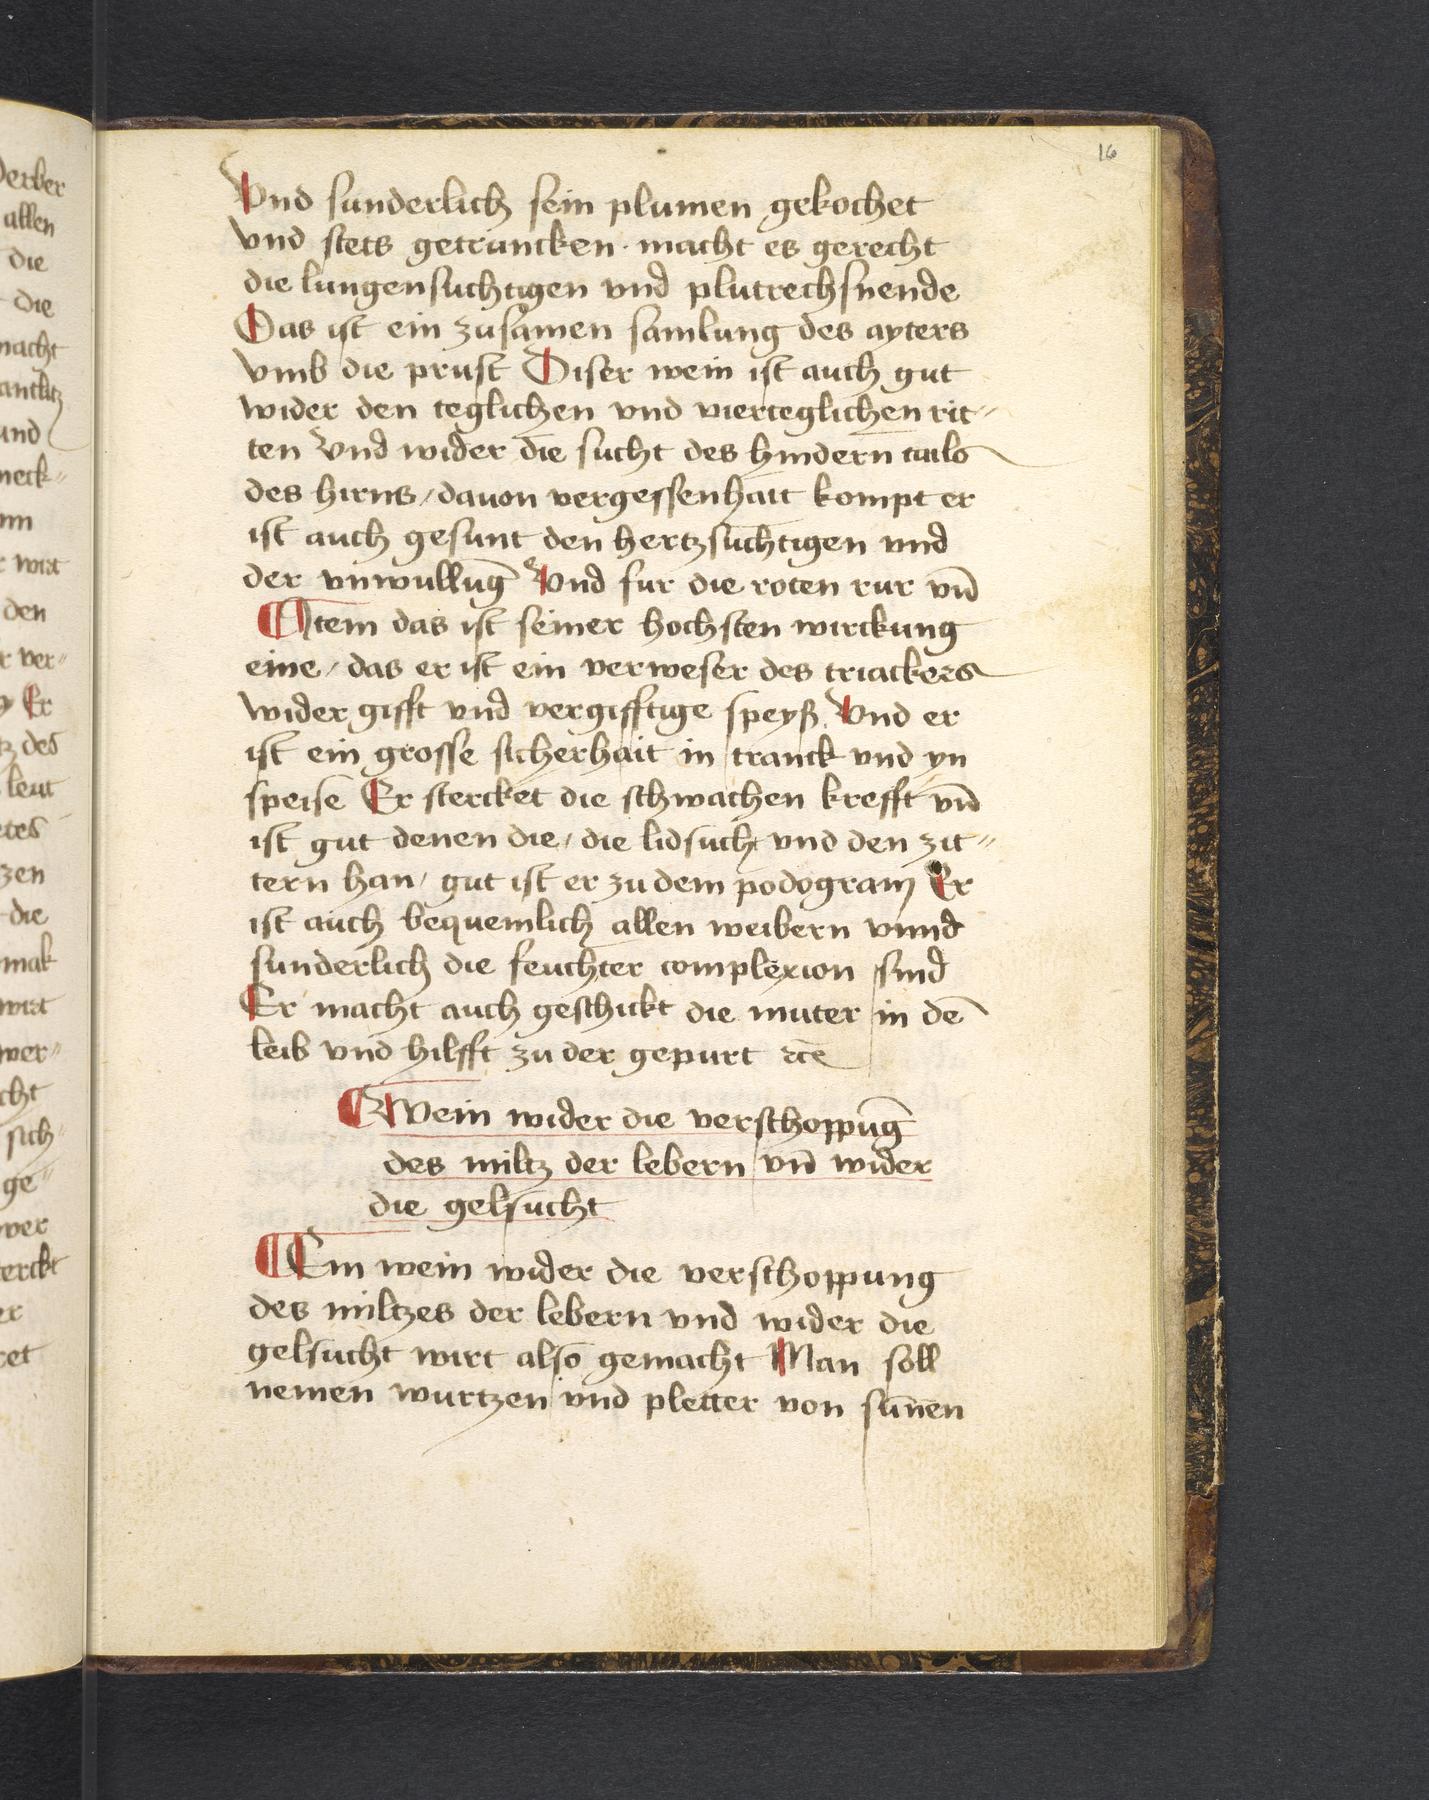 16
Vnd sunderlich sein plumen gekochet
vnd stets getruncken · macht es gerecht
die lungensuchtigen vnd plutrechsnende
Das ist ein zusamen samlung des ayters
vmb die prust Diser wein ist auch gut
wider den teglichen vnd vierteglichen rit⸗
ten Vnd wider die sucht des hindern tails
des hirns / dauon vergessenhait kompt er
ist auch gesunt den hertzsuchtigen vnd
der vnwullūg Vnd fur die roten rur vn̄
Item das ist seiner hochsten wirckung
eine / das er ist ein verweser des triackers
wider gifft vnd vergifftige speyß. Vnd er
ist ein grosse sicherhait in tranck vnd yn
speise Er stercket die schwachen krefft vn̄
ist gut denen die / die lidsucht vnd den zit⸗
tern han / gut ist er zu dem podogram Er
ist auch bequemlich allen weibern vnnd
sunderlich die feuchter complexion sind
Er macht auch geschickt die muter in dē
leib vnd hilfft zu der gepurt ꝛcē
Wein wider die verschoppūg
des miltz der lebern vn̄ wider
die gelsucht
Ein wein wider die verschoppung
des miltzes der lebern vnd wider die
gelsucht wirt also gemacht Man soll
nemen wurtzen vnd pletter von sūnen